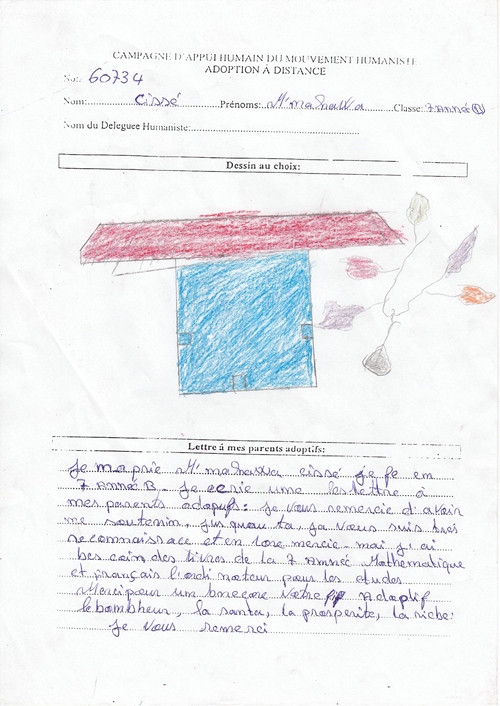 CAMPAGNE D'APPUI HUMAIN DU MOUVEMENT HUMANISTE
ADOPTION À DISTANCE
No: 60734
Nom: Cissé Prénoms: M'mahawa Classe: 7 Année (B)
Nom du Deleguee Humaniste:
Dessin au choix:
Lettre à mes parents adoptifs:
Je ma prie M'mahawa cissé je fe em
7 Année B. Je ecrie une lettre à
mes parents adoptifs: je vous remercie d'avoir
me soutenim, jus quau ta, ja vous suis tres
reconnaissace et en core mercie - mai j'ai
bes coin des livres de la 7 Année Mathematique
et français l'ordi nateur pour les etudes
Merci pour un encore Votre Adoptif
le bombheur, la santa, la prosperite, la riche:
Je vous remerci